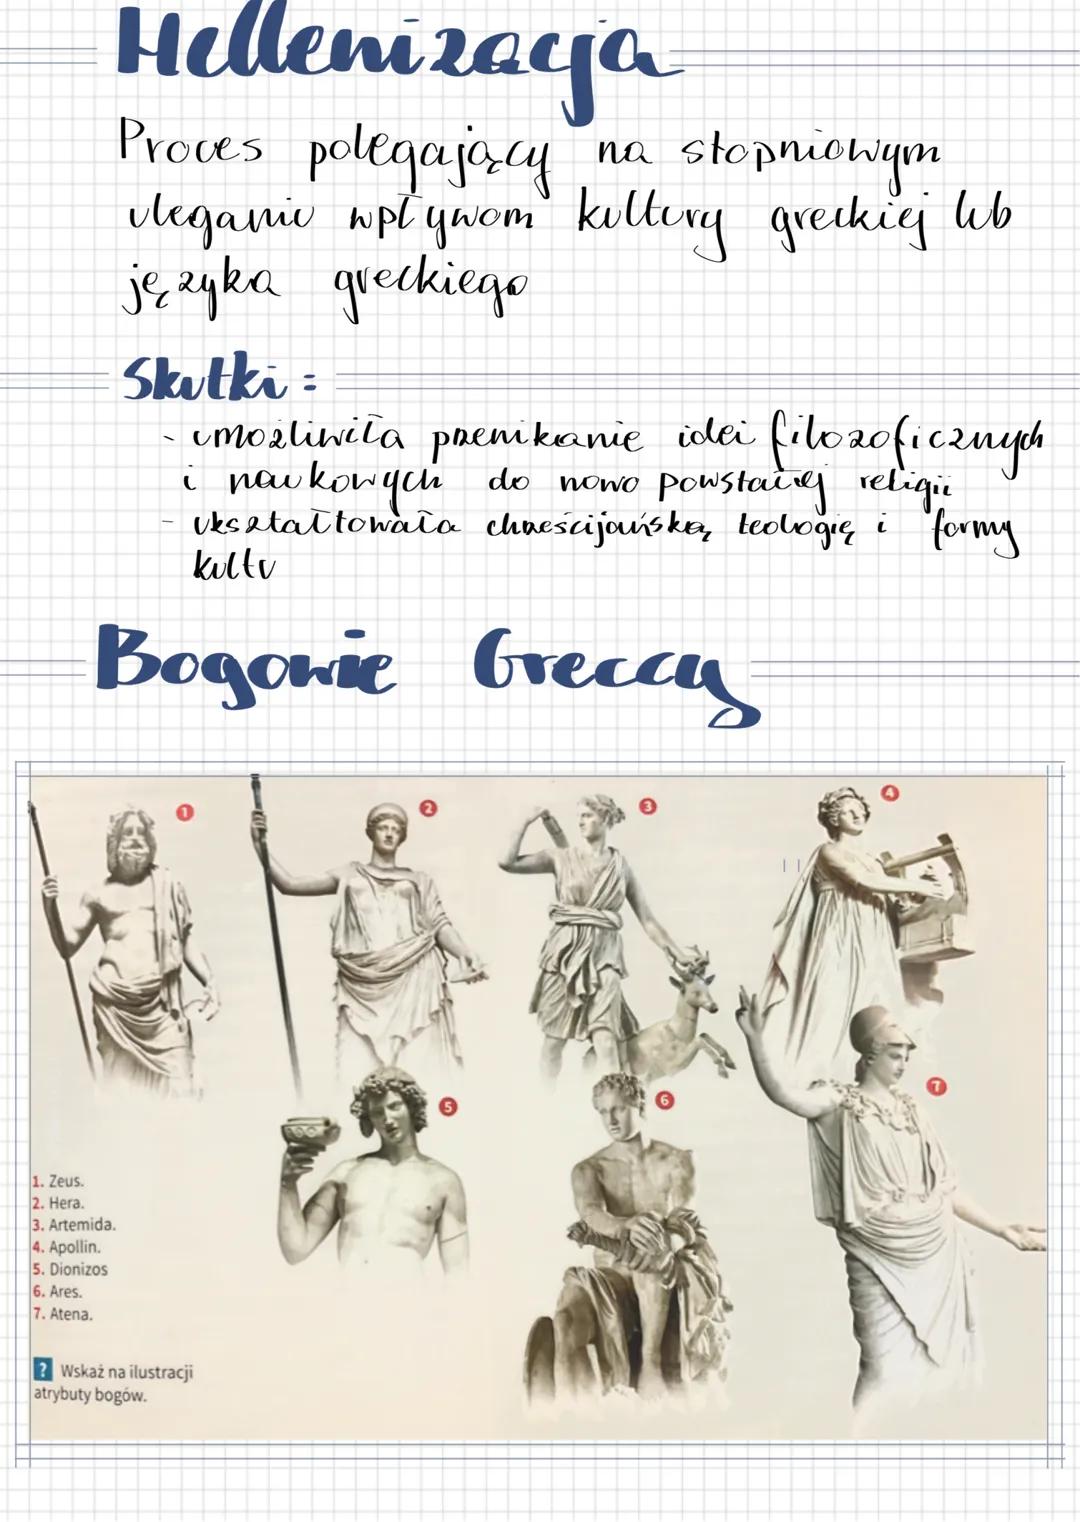 Hellenizacja
Proces polegający na stopniowym
uleganiu wpływom kultury greckiej lub
języka greckiego
Skutki:
- umożliwiła przenikanie idei filozoficznych
i naukowych do nowo powstałej religii
- ukształtowała chrześcijańską teologię i formy
kultu
Bogowie Greccy
1
2
3
4
5
6
7
1. Zeus.
2. Hera.
3. Artemida.
4. Apollin.
5. Dionizos
6. Ares.
7. Atena.
? Wskaż na ilustracji
atrybuty bogów.